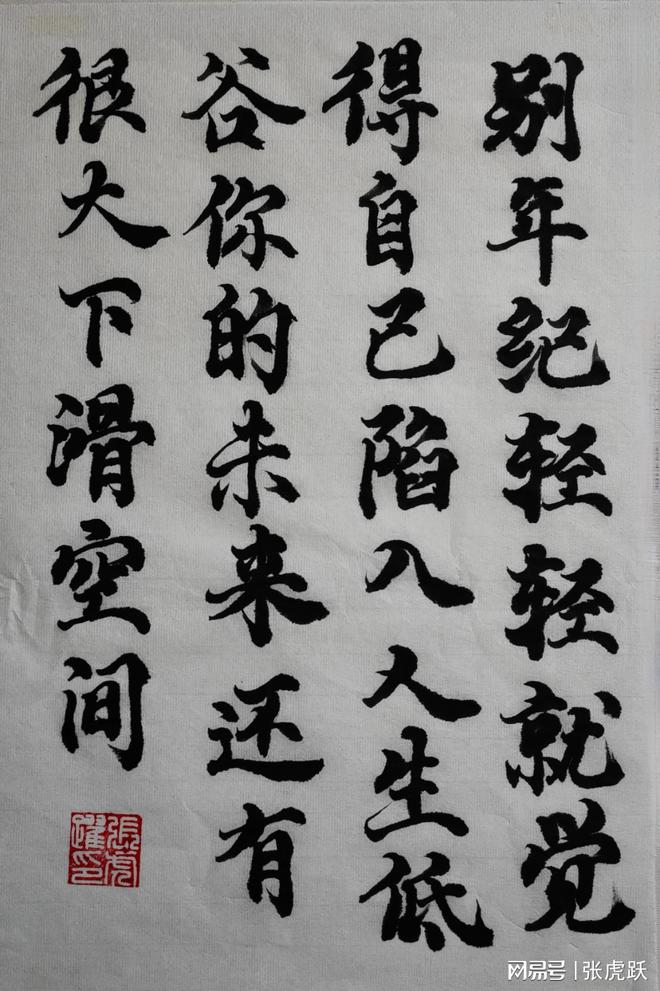 别年纪轻轻就觉
得自己陷入人生低
谷你的未来还有
很大下滑空间
張虎
躍印
网易号|张虎跃